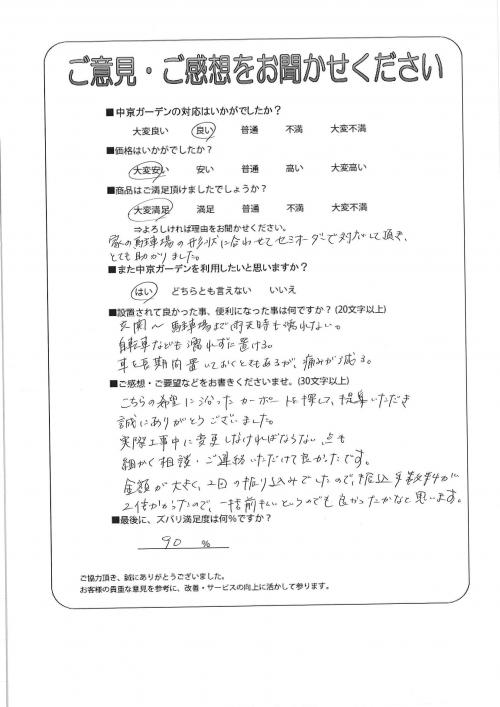 ご意見・ご感想をお聞かせください
■中京ガーデンの対応はいかがでしたか？
大変良い 良い 普通 不満 大変不満
■価格はいかがでしたか？
大変安い 安い 普通 高い 大変高い
■商品はご満足頂けましたでしょうか？
大変満足 満足 普通 不満 大変不満
⇒よろしければ理由をお聞かせください。
家の駐車場の形状に合わせてセミオーダで対応して頂き、
とても助かりました。
■また中京ガーデンを利用したいと思いますか？
はい どちらとも言えない いいえ
■設置されて良かった事、便利になった事は何ですか？(20文字以上)
玄関〜駐車場まで雨天時も濡れない。
自転車なども濡れずに置ける。
車を長期間置いておくこともあるが、痛みが減る。
■ご感想・ご要望などをお書きくださいませ。(30文字以上)
こちらの希望に沿ったカーポートを探して、提案いただき
誠にありがとうございました。
実際工事中に変更しなければならない点も
細かく相談・ご連絡いただけて良かったです。
金額が大きく、2回の振り込みでしたので、振込手数料が
2倍かかったので、一括前払いというのでも良かったかなと思います。
■最後に、ズバリ満足度は何％ですか？
90 ％
ご協力頂き、誠にありがとうございました。
お客様の貴重な意見を参考に、改善・サービスの向上に活かして参ります。